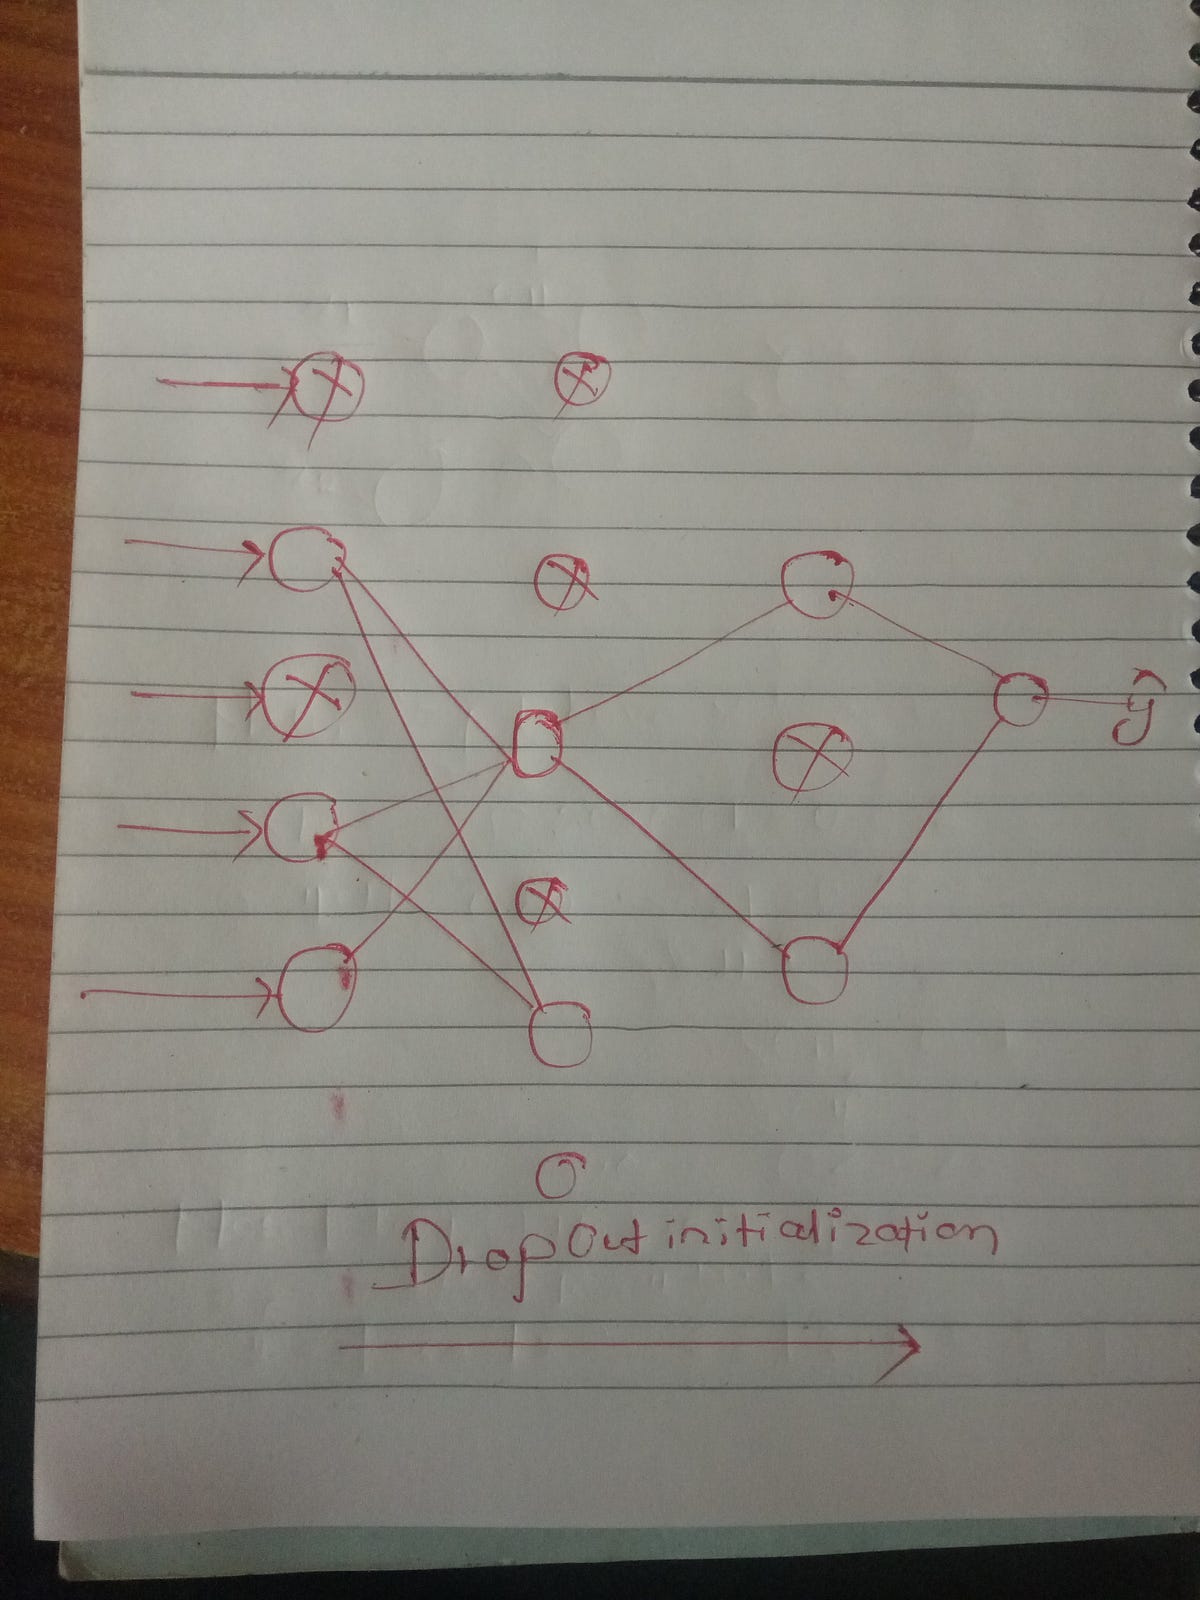 ŷ
Dropout initialization